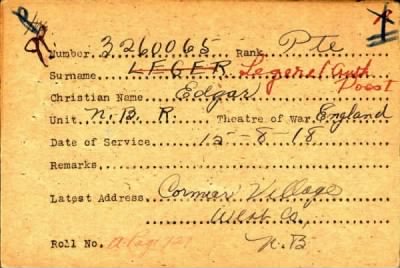 Number 3260065 Rank Pte
Surname LEGER Legere
Christian Name Edgar
Unit N.B.R. Theatre of War England
Date of Service 15-8-18
Remarks
Latest Address Cormier Village
West Co.,
N.B
Roll No.